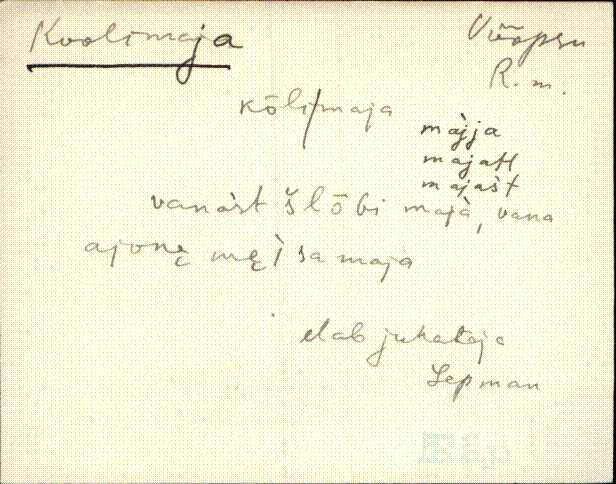 Koolimaja
Võõpsu
R. m.
kōli/maja
màjja
majatt
majašt
vanàst šlōbi majà, vana
ajonę męìsa maja
elab juhataja
Lepman
Räp